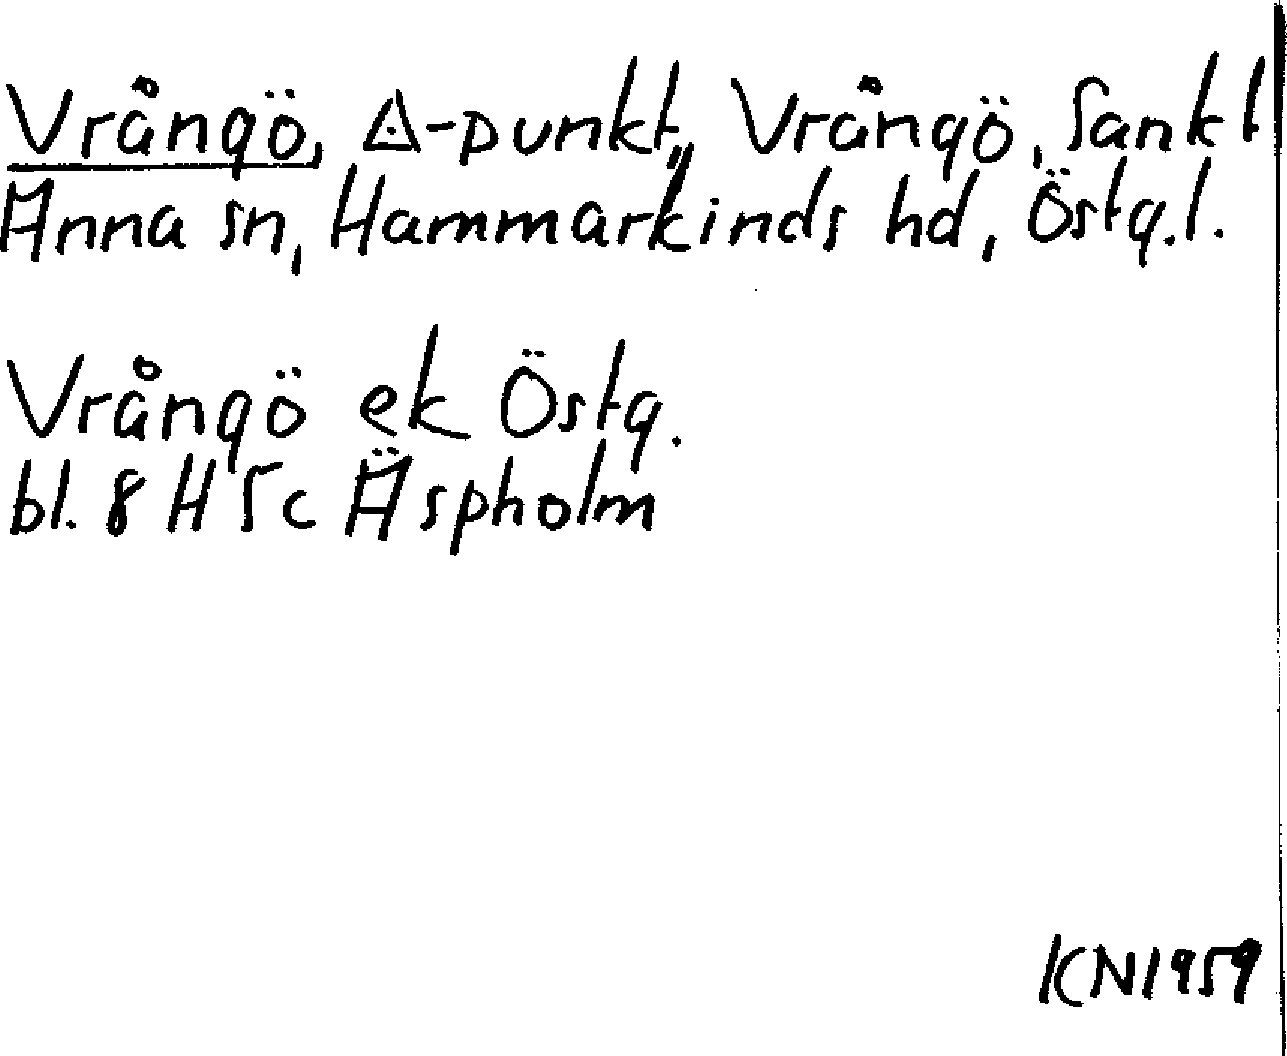 Vrångö, △-punkt, Vrångö, Sankt
Anna sn, Hammarkinds hd, Östg.l.
Vrångö ek Östg.
bl. 8 H 5c Äspholm
KN 1959